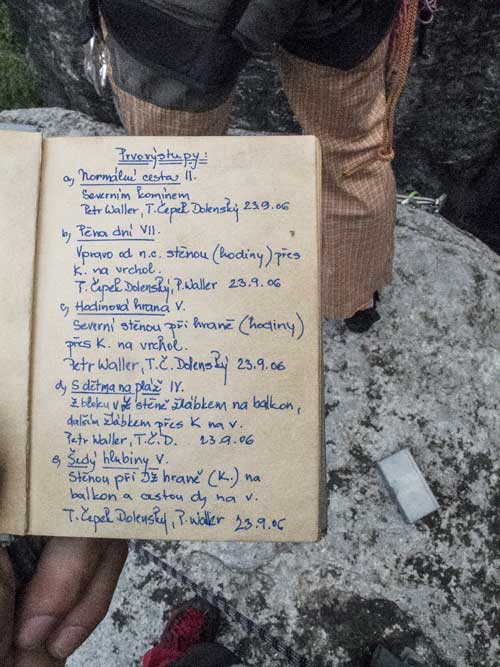 Prvovýstupy:
a, Normální cesta II.
Severním komínem
Petr Waller, T. Čepek Dolenský 23.9.06
b, Pěna dní VII.
Vpravo od n.c. stěnou (hodiny) přes
K. na vrchol.
T. Čepek Dolenský, P. Waller 23.9.06
c, Hodinová hrana V.
Severní stěnou při hraně (hodiny)
přes K. na vrchol.
Petr Waller, T.Č. Dolenský 23.9.06
d, S dětma na pláž IV.
Z bloku v stěně žlábkem na balkon,
dalším žlábkem přes K na v.
Petr Waller, T.Č.D. 23.9.06
e, Šedý hlubiny V.
Stěnou při JZ hraně (K.) na
balkon a cestou d, na v.
T. Čepek Dolenský, P. Waller 23.9.06